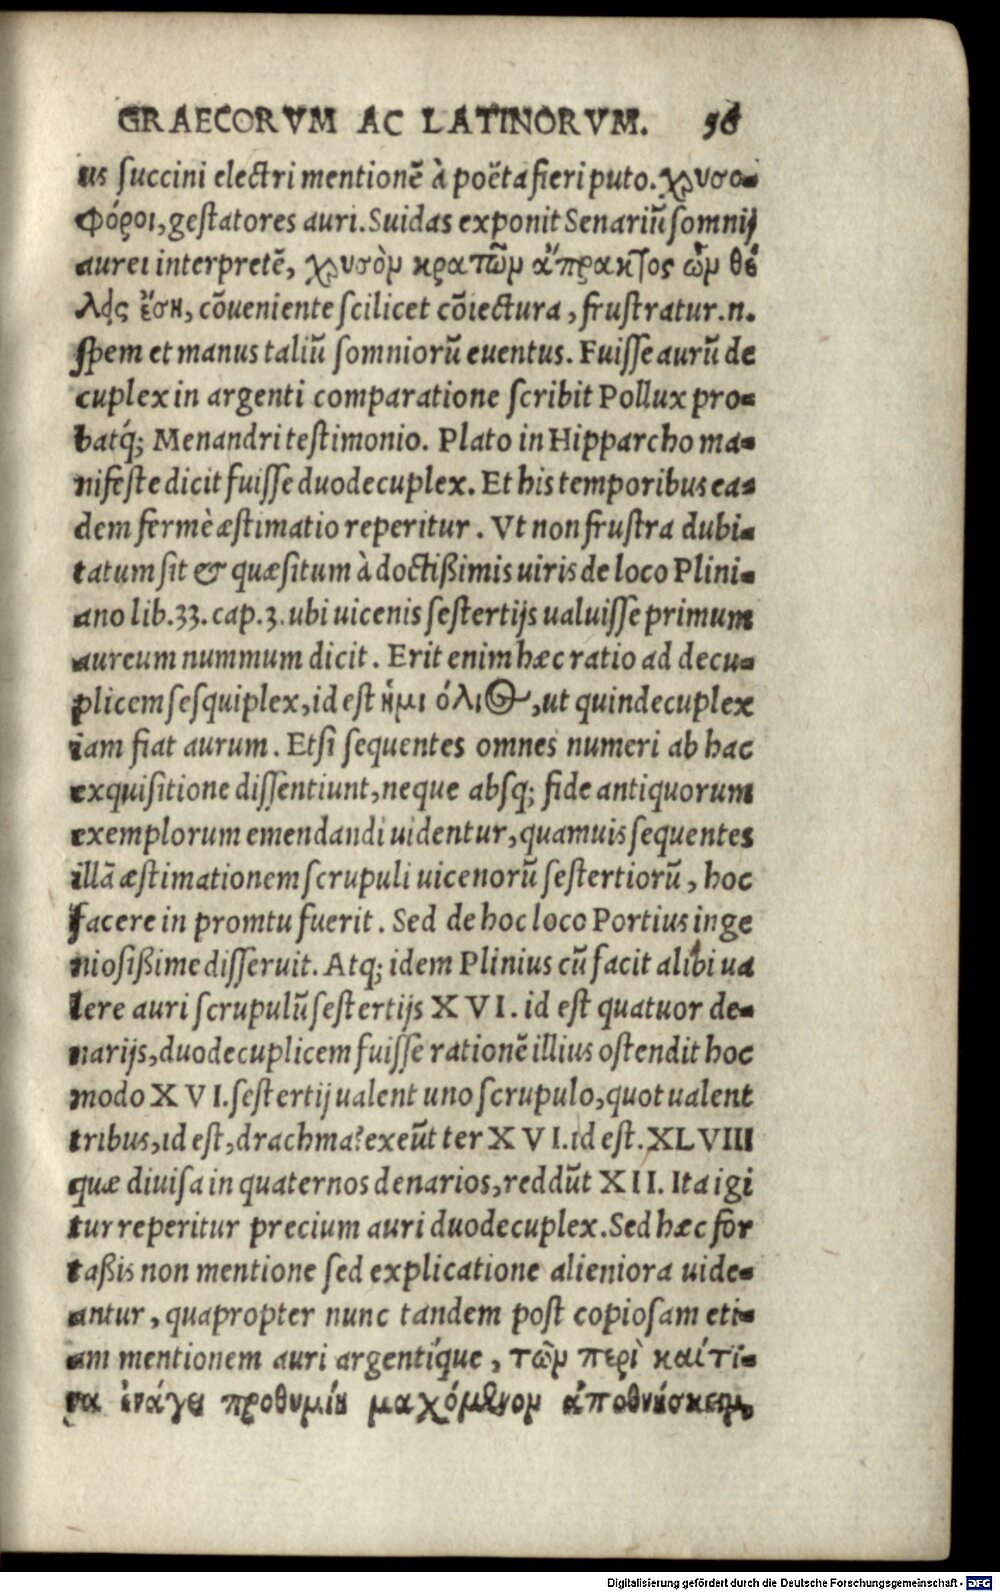 GRAECORVM AC LATINORVM. 56
us ſuccini electri mentionē à poëta fieri puto. χρυσο-
φόροι, geſtatores auri. Suidas exponit Senariū ſomnij
aurei interpretē, χρυσὸν κρατῶν ἄπρακτος ὢν θέ
λῃς ἔσῃ, cōueniente ſcilicet cōiectura, fruſtratur.n.
ſpem et manus taliū ſomniorū euentus. Fuiſſe aurū de
cuplex in argenti comparatione ſcribit Pollux pro-
batq́; Menandri teſtimonio. Plato in Hipparcho ma-
nifeſte dicit fuiſſe duodecuplex. Et his temporibus ea-
dem fermè æſtimatio reperitur. Vt non fruſtra dubi-
tatum ſit & quæſitum à doctißimis uiris de loco Plini-
ano lib.33. cap.3. ubi uicenis ſeſtertijs ualuiſſe primum
aureum nummum dicit. Erit enim hæc ratio ad decu-
plicem ſeſquiplex, id eſt ἡμιόλιος, ut quindecuplex
iam fiat aurum. Etſi ſequentes omnes numeri ab hac
exquiſitione diſſentiunt, neque abſq; fide antiquorum
exemplorum emendandi uidentur, quamuis ſequentes
illā æſtimationem ſcrupuli uicenorū ſeſtertiorū, hoc
facere in promtu fuerit. Sed de hoc loco Portius inge
nioſißime diſſeruit. Atq; idem Plinius cū facit alibi ua
lere auri ſcrupulū ſeſtertijs XVI. id eſt quatuor de-
narijs, duodecuplicem fuiſſe rationē illius oſtendit hoc
modo XVI. ſeſtertij ualent uno ſcrupulo, quot ualent
tribus, id eſt, drachma? exeūt ter XVI. id eſt. XLVIII
quæ diuiſa in quaternos denarios, reddūt XII. Ita igi
tur reperitur precium auri duodecuplex. Sed hæc for
taßis non mentione ſed explicatione alieniora uide-
antur, quapropter nunc tandem poſt copioſam eti-
am mentionem auri argentíque, τῶν περὶ καί τι-
να ἐνάγει προθυμίη μαχόμενον ἀποθνήσκειν,
Digitalisierung gefördert durch die Deutsche Forschungsgemeinschaft - DFG